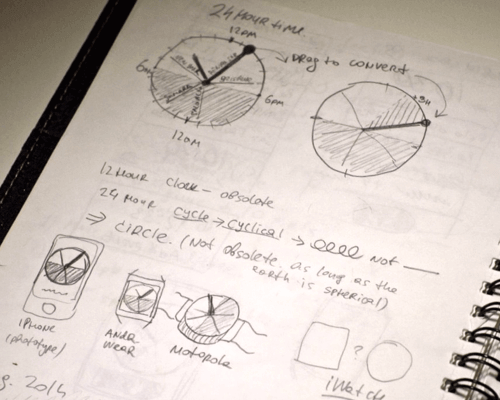 24 HOUR TIME.
12PM
DRAG TO CONVERT
6AM
+9H
6PM
12AM
12 HOUR CLOCK – OBSOLETE
24 HOUR CYCLE → CYCLICAL → NOT
⇒ CIRCLE. (NOT OBSOLETE. AS LONG AS THE
EARTH IS SPHERICAL)
IPHONE
(PROTOTYPE)
ANDR
WEAR
MOTOROLA
?
iWatch
2014